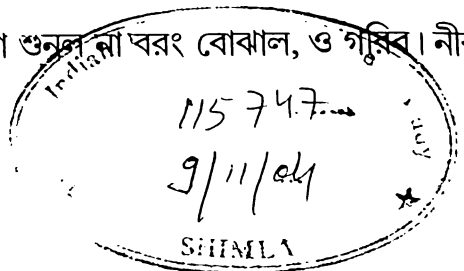 শুনল না বরং বোঝাল, ও গরিব।
Indian
115747
9/11/04
SHIMLA